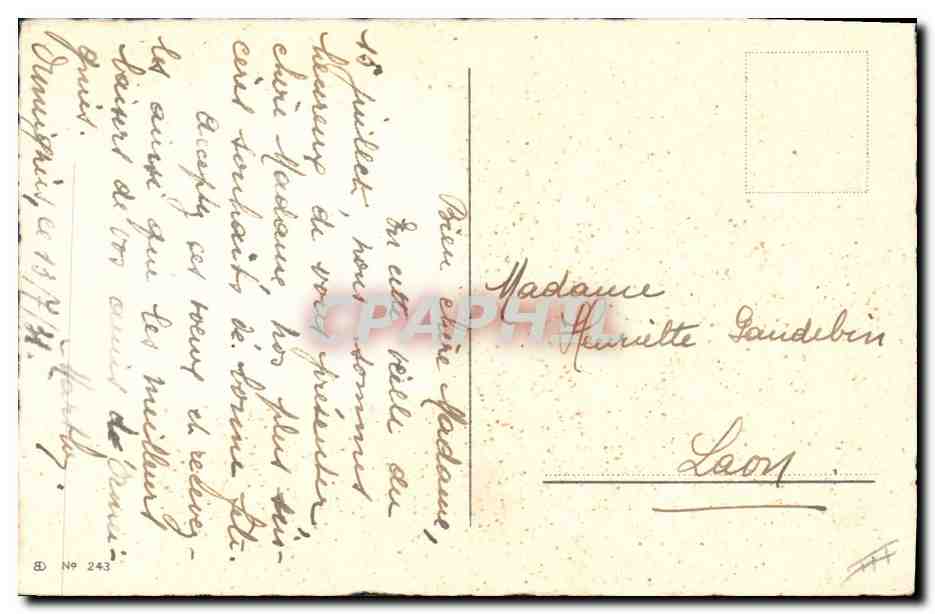 Bien chère Madame,
En cette veille du
15 juillet, nous sommes
heureux de vous présenter
chère Madame, nos plus sin-
cères souhaits de bonne fête.
Acceptez ces voeux et recevez-
les ainsi que les meilleurs
baisers de vos amies
gnies.
ce 13/7/31.
Madame
Henriette Gaudebin
Laon
CPAPHIL
BD Nº 243